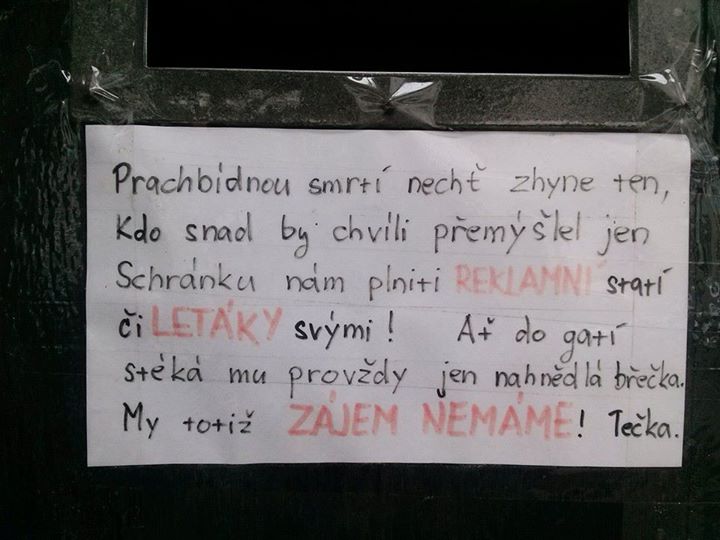 Prachbídnou smrtí nechť zhyne ten,
Kdo snad by chvíli přemýšlel jen
Schránku nám plniti REKLAMNÍ statí
či LETÁKY svými! Ať do gatí
stéká mu provždy jen nahnědlá břečka.
My totiž ZÁJEM NEMÁME! Tečka.